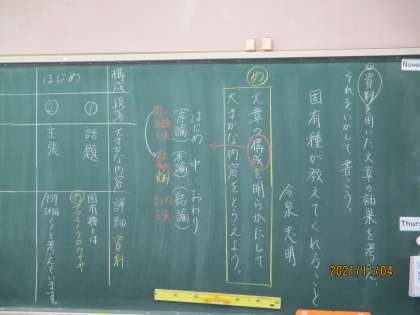 資料を用いた文章の効果を考え、
それをいかして書こう。
固有種が教えてくれること
今泉忠明
め
文章の構成を明らかにして
大まかな内容をとらえよう。
はじめ 中 おわり
(序論) (本論) (結論)
構成 段落 大まかな内容 詳細 資料
はじめ
① 話題
固有種とは
② 主張
と考えています。
Nove
Thurs
2021/11/04